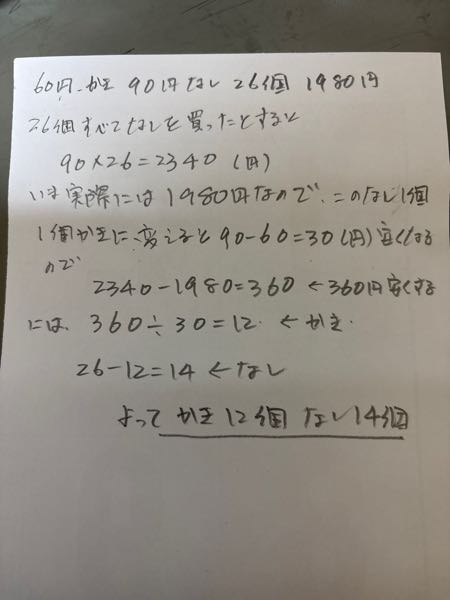 60円 かき 90円なし 26個 1980円
26個すべてなしを買ったとすると
90×26=2340 (円)
いま実際には1980円なので、このなし1個
1個かきに変えると90-60=30(円)安くなる
ので
2340-1980=360 ←360円安くする
には、360÷30=12. ←かき.
26-12=14 ←なし
よって かき12個 なし14個